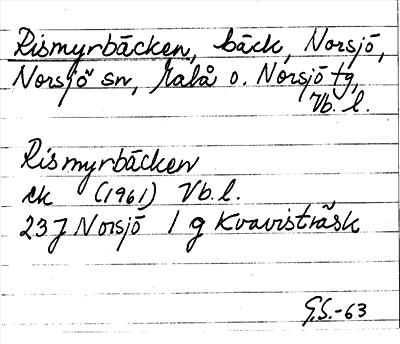 Rismyrbäcken, bäck, Norsjö,
Norsjö sn, Malå o. Norsjö tg,
Vb. l.
Rismyrbäcken
ek (1961) Vb. l.
23J Norsjö 1 g Kvavisträsk
G.S.-63